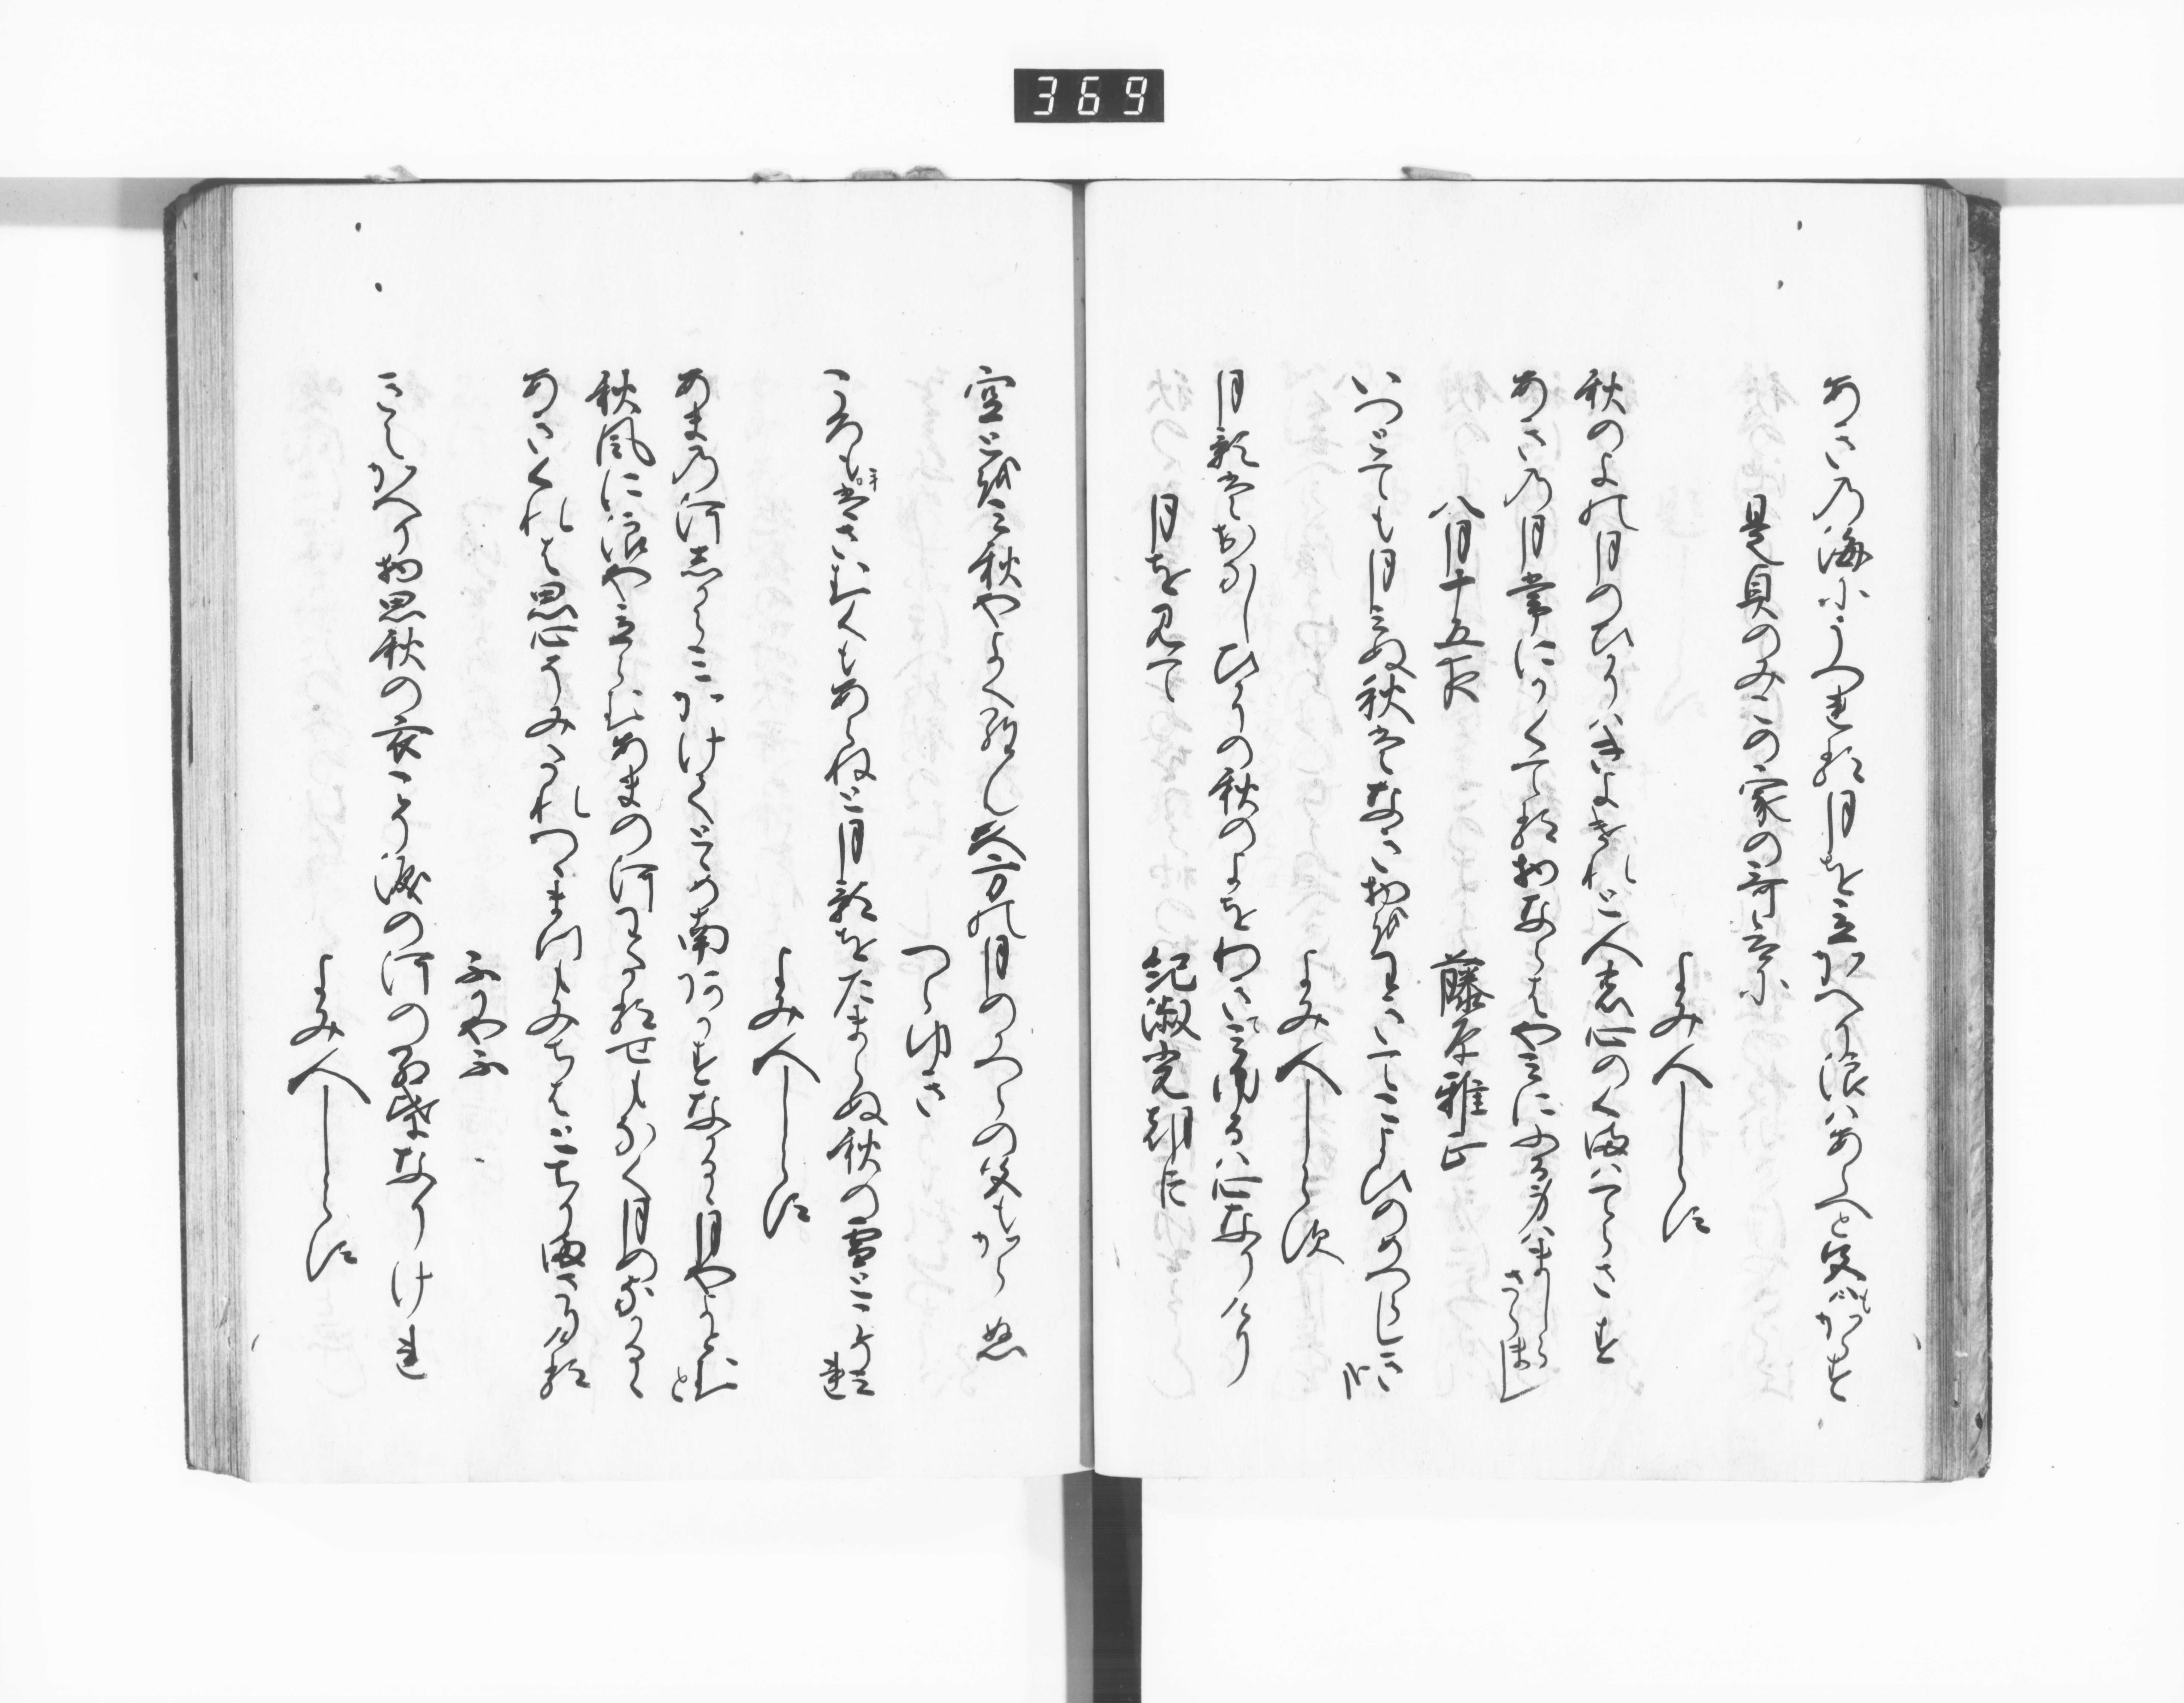 369
あきの海にうつれる月を立かへり浪はあらへと色もかはらす
是貞のみこの家の哥合に
よみ人しらす
秋のよの月のひかりはきよけれと人の心のくまはてらさす
あきの月常にかくてる物ならはやみにふる身はましらさらまし
八月十五夜
藤原雅正
いつとても月みぬ秋はなき物をわきてこよひのめつらしき哉
よみ人しらす
月影はおなしひかりの秋のよをわきてみゆるは心なりけり
月を見て　紀淑光朝臣
空とをみ秋やよくらん久方の月のかつらの色もかはらぬ
つらゆき
ころもてはさむくもあらねと月影をたまらぬ秋の雪とこそみれ
よみ人しらす
あまの河しからみかけてとゝめ南あかすなかるゝ月やよとむと
秋風に浪や立らんあまの河わたるせもなく月のなかるゝ
あきくれは思心そみたれつゝまつもみちはとちりまさりける
ふかやふ
きえかへり物思秋の衣こそ涙の河の紅葉なりけれ
よみ人しらす